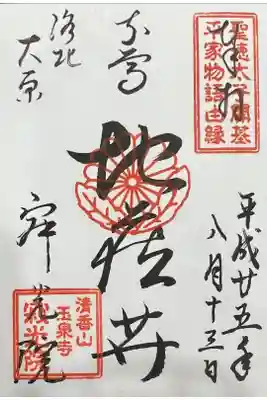 奉拝
聖徳太子開基
平家物語由縁
平成廿五年
八月十三日
地蔵𦬇
洛北
大原
寂光院
清香山
玉泉寺
寂光院